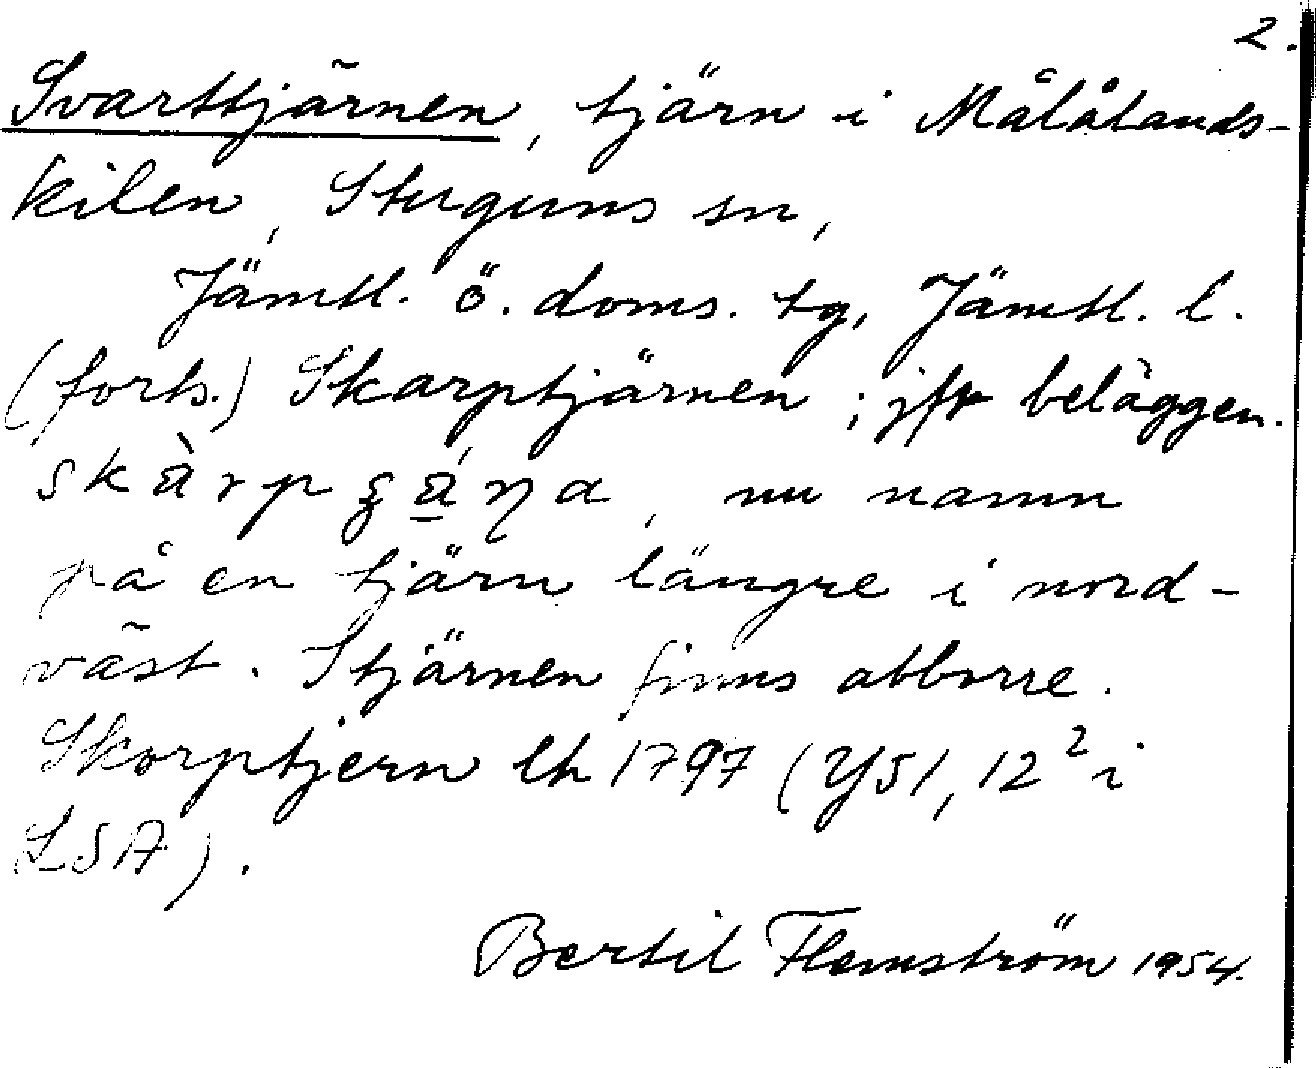 2.
Svarttjärnen, tjärn i Målålands-
kilen, Stuguns sn,
Jämtl. ö. doms. tg, Jämtl. l.
(forts.) Skarptjärnen; jfr beläggen.
på en tjärn längre i nord-
väst. I tjärnen finns abborre.
Skorptjern lh 1797 (Y51, 12² i
LSA).
nu namn
Bertil Flemström 1954.